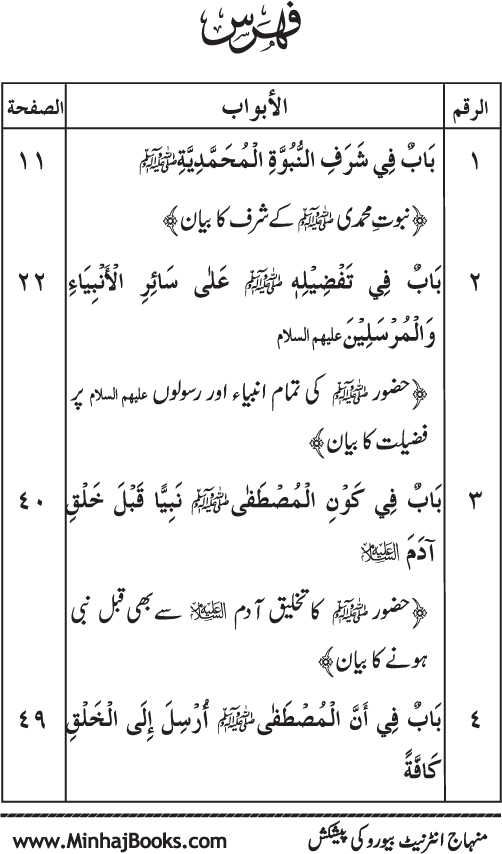 فهرس
الرقم الأبواب الصفحة
١ بَابٌ فِي شَرَفِ النُّبُوَّةِ الْمُحَمَّدِيَّةِ ﷺ ١١
﴿نبوتِ محمدی ﷺ کے شرف کا بیان﴾
٢ بَابٌ فِي تَفْضِيْلِهٖ ﷺ عَلٰى سَائِرِ الْأَنْبِيَاءِ ٢٢
وَالْمُرْسَلِيْنَ علیہم السلام
﴿حضور ﷺ کی تمام انبیاء اور رسولوں علیہم السلام پر
فضیلت کا بیان﴾
٣ بَابٌ فِي كَوْنِ الْمُصْطَفٰى ﷺ نَبِيًّا قَبْلَ خَلْقِ ٤٠
آدَمَ علیہ السلام
﴿حضور ﷺ کا تخلیق آدم علیہ السلام سے بھی قبل نبی
ہونے کا بیان﴾
٤ بَابٌ فِي أَنَّ الْمُصْطَفٰى ﷺ أُرْسِلَ إِلَى الْخَلْقِ ٤٩
كَافَّةً
منہاج انٹرنیٹ بیورو کی پیشکش www.MinhajBooks.com